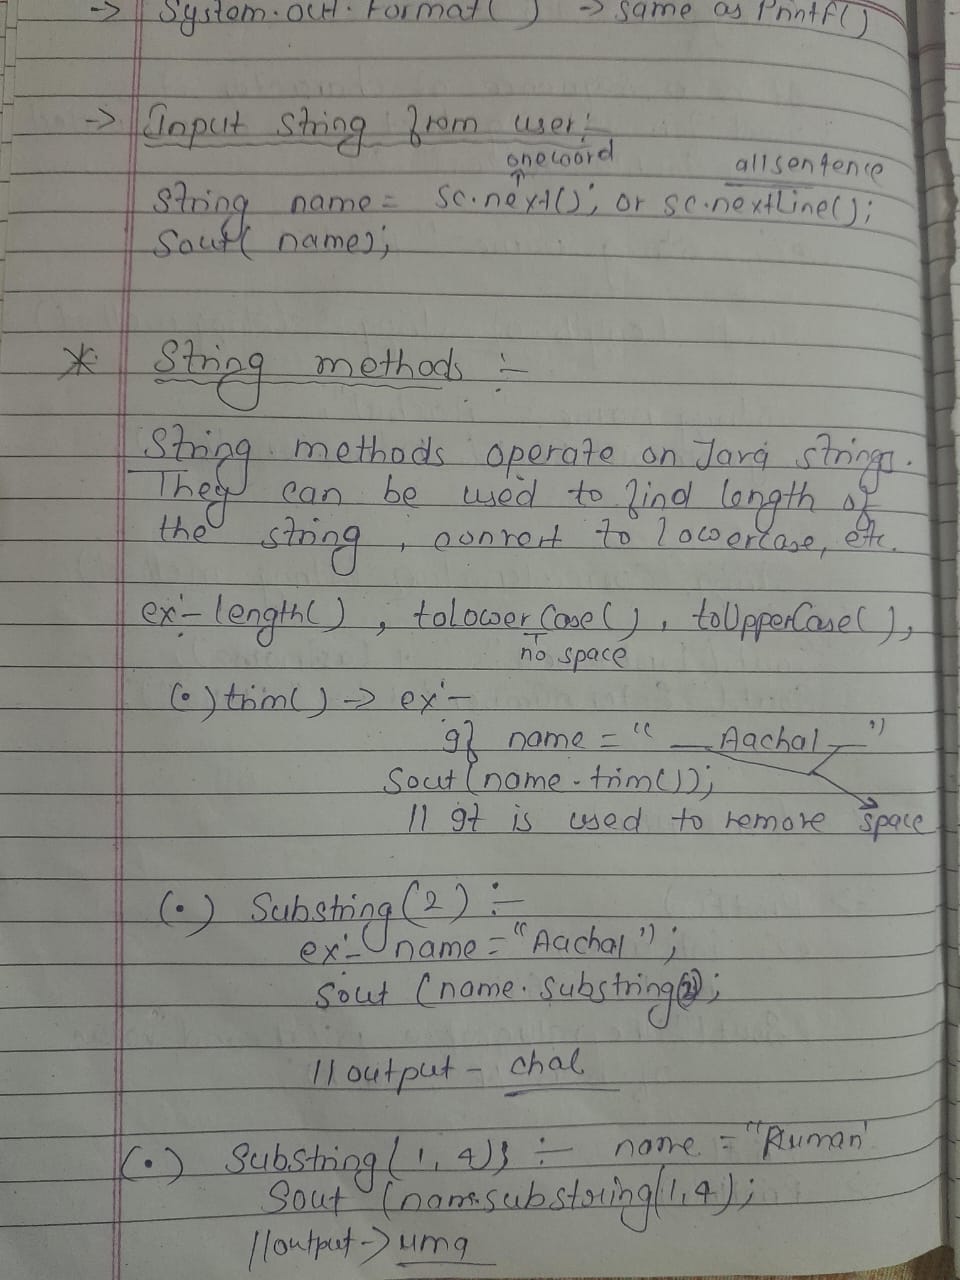 -> System.out.format() -> same as Printf()
-> Input string from user:
one word
all sentence
String name = sc.next(); or sc.nextLine();
Sout( name);
* String methods :-
String methods operate on Java strings.
They can be used to find length of
the string, convert to lowercase, etc.
ex:- length(), toLowerCase(), toUpperCase(),
no space
(•) trim() -> ex:-
If name = " Aachal "
Sout(name.trim());
// It is used to remove space
(•) Substring(2) :-
ex:- name = "Aachal");
Sout (name.substring(2);
// output - chal
(•) Substring(1, 4); :- name = "Ruman"
Sout (name.substring(1,4);
//output -> uma